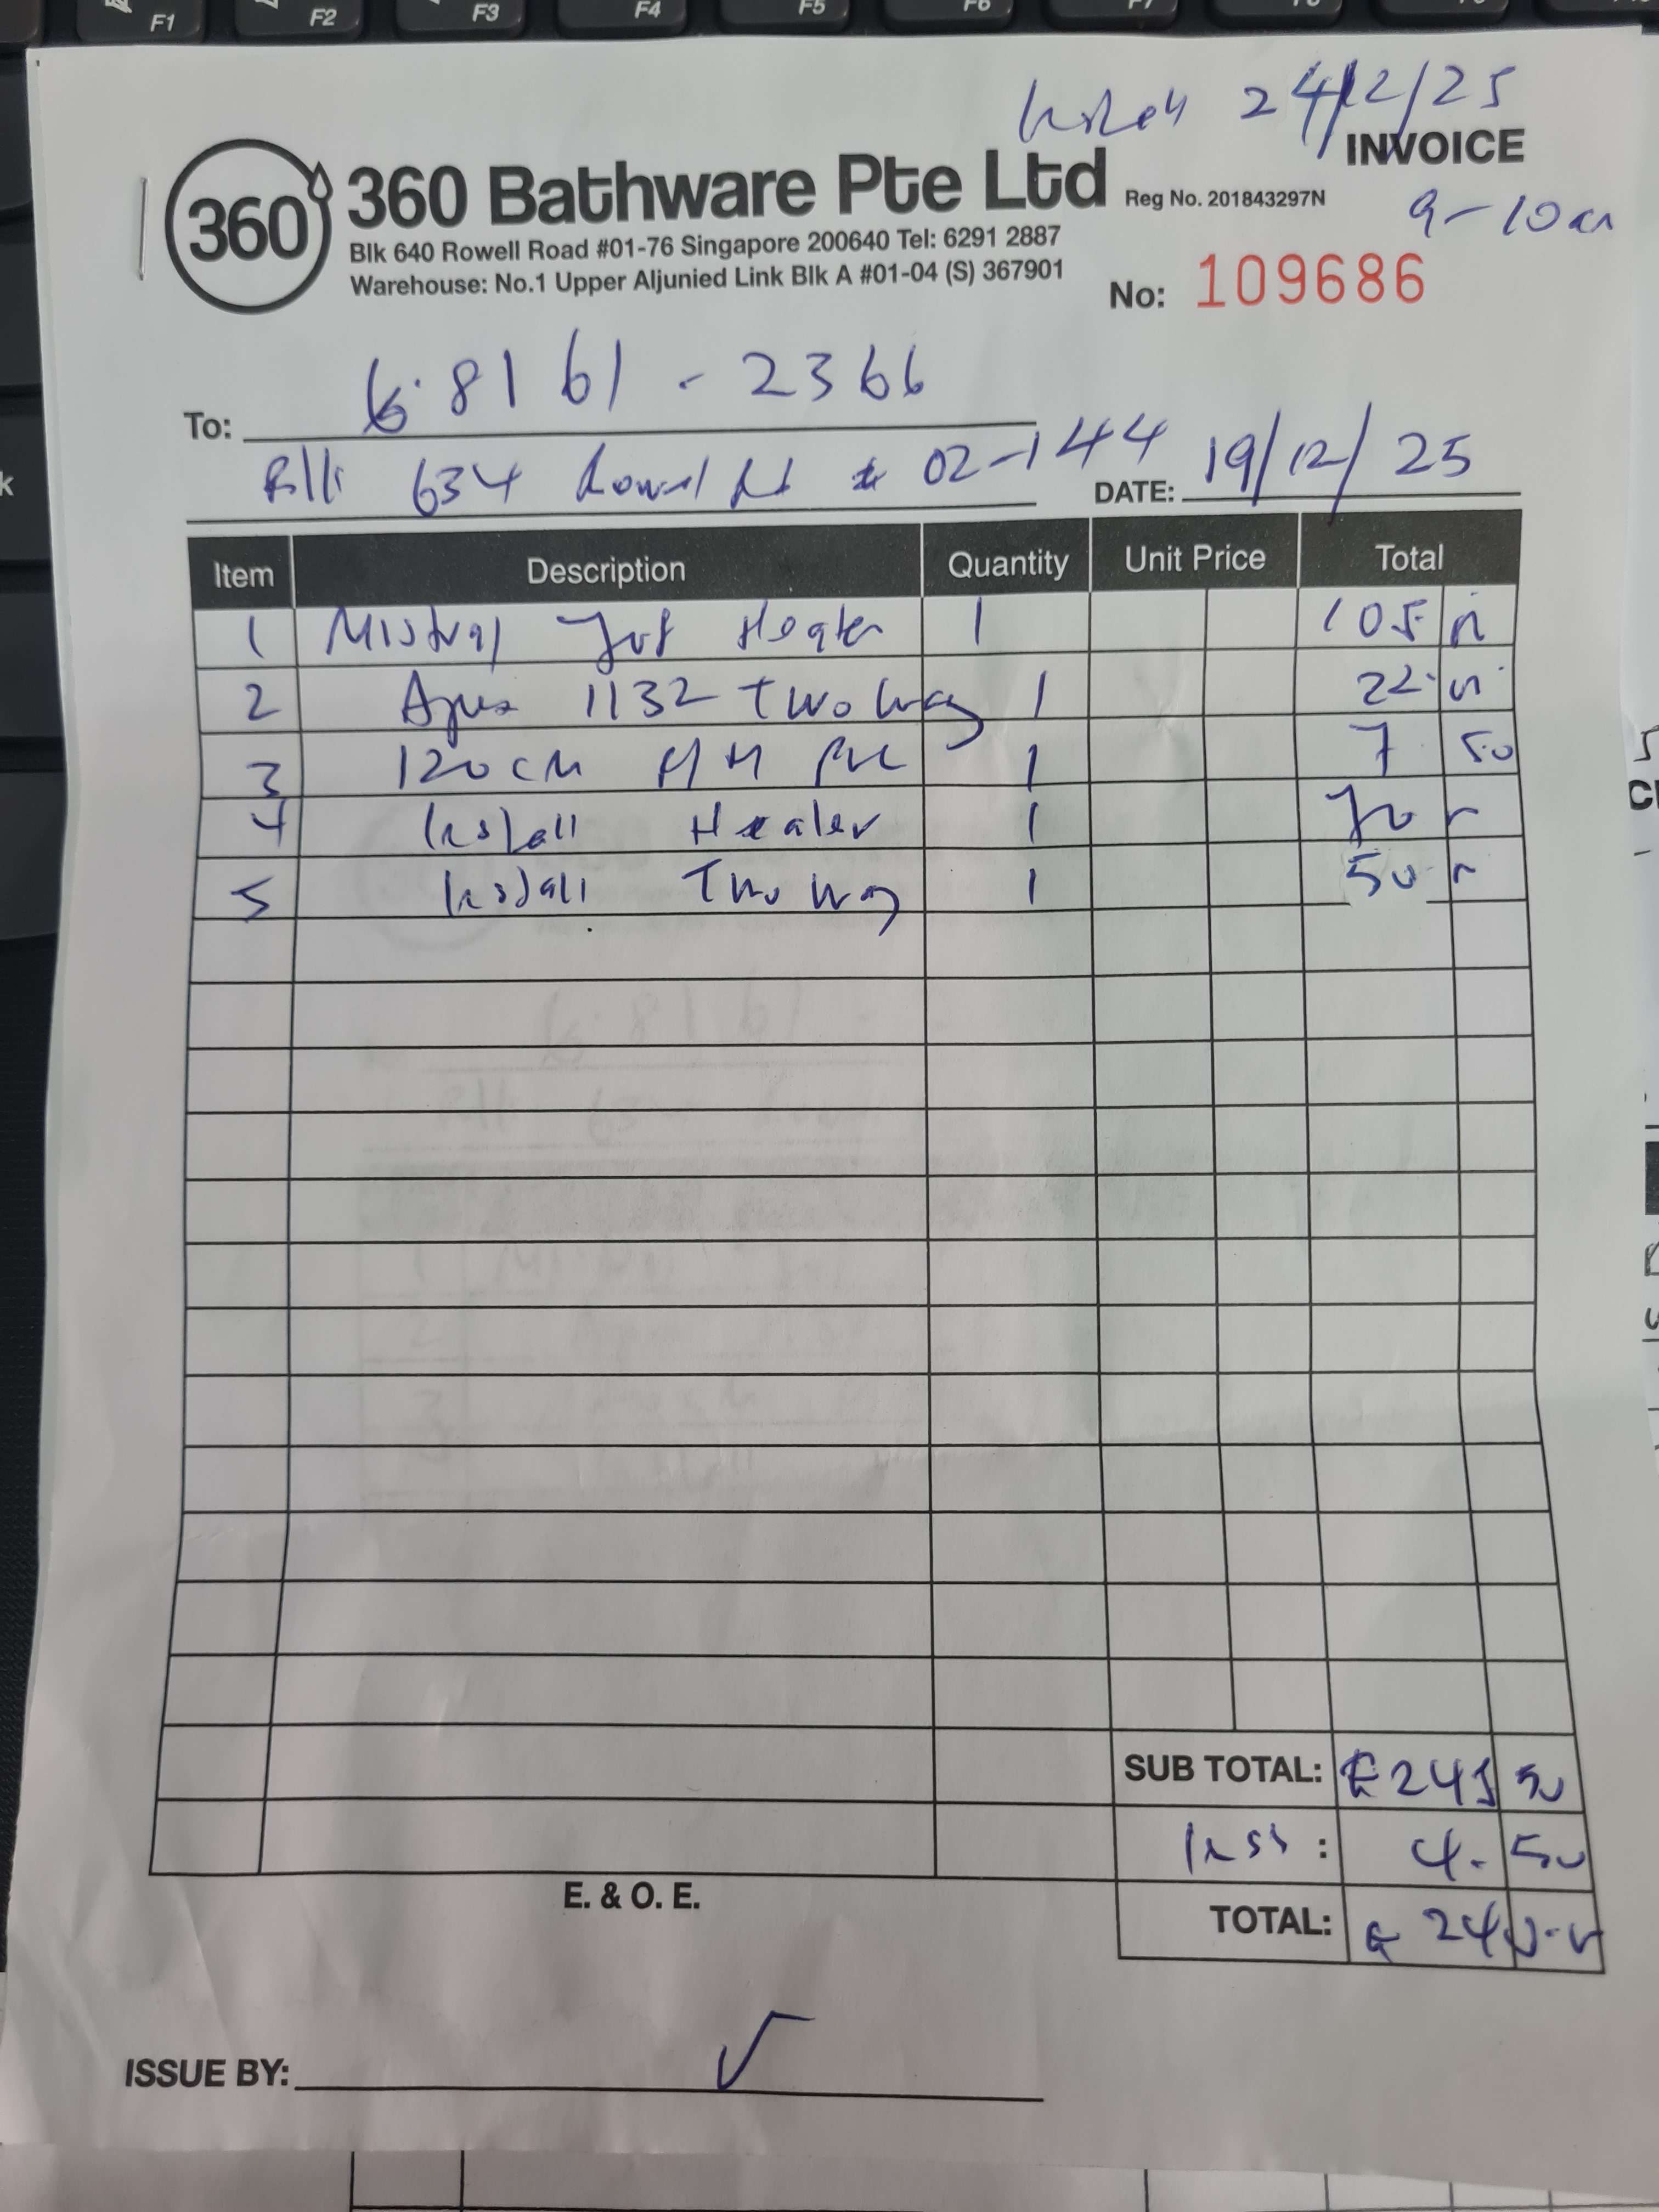 F1 F2 F3 F4 F5 F6 F7
Install 24/12/25
INVOICE
9-10am
360
360 Bathware Pte Ltd
Reg No. 201843297N
Blk 640 Rowell Road #01-76 Singapore 200640 Tel: 6291 2887
Warehouse: No.1 Upper Aljunied Link Blk A #01-04 (S) 367901
No: 109686
To: 8161-2366
Blk 634 Rowell Rd # 02-144
DATE: 19/12/25
Item Description Quantity Unit Price Total
1 Mistral Heater 1 105
2 1132 Two Way 1 22
3 120cm PVC 1 7 50
4 Install Heater 1 70
5 Install Two Way 1 50
SUB TOTAL: 50
less : 4. 50
E. & O. E.
TOTAL: 240
ISSUE BY: